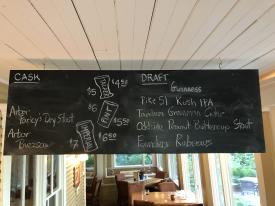 CASK
$5
$4.50
$6
$5
$7
$6.50
Arbor
Yorkey's Dry Stout
Arbor
DRAFT
Guinness
Pike 51 Kush IPA
Tandem Greenman Cider
Oddside Peanut Buttercup Stout
Founders Rubaeus